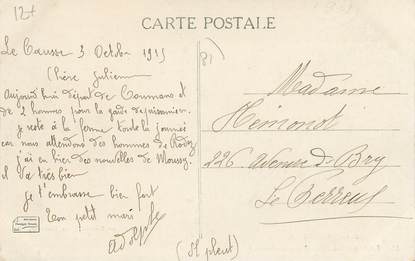 124
CARTE POSTALE
Le Causse 3 Octobre 1915
(81)
Chère Julienne
Aujourd'hui départ de Coumans et
de 2 hommes pour la garde de prisonniers.
je reste à la ferme toute la journée
car nous attendons des hommes de Rodez
j'ai eu hier des nouvelles de Moussy.
il va très bien
je t'embrasse bien fort
Ton petit mari
Adolphe
(Il pleut)
Madame
Hémondt
226 Avenue de Bry
Le Perreux